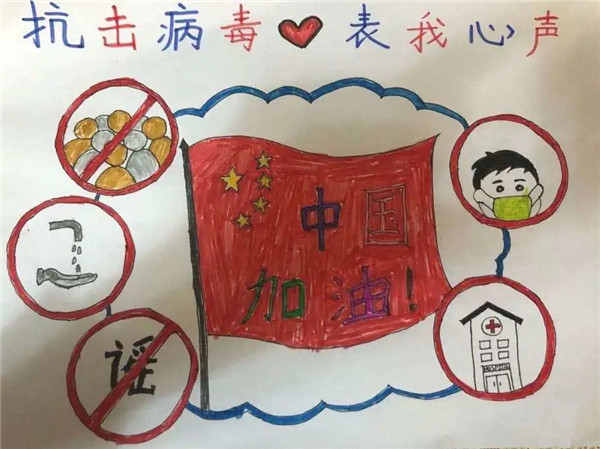 抗击病毒表我心声
中国
加油!
谣
HOSPITAL